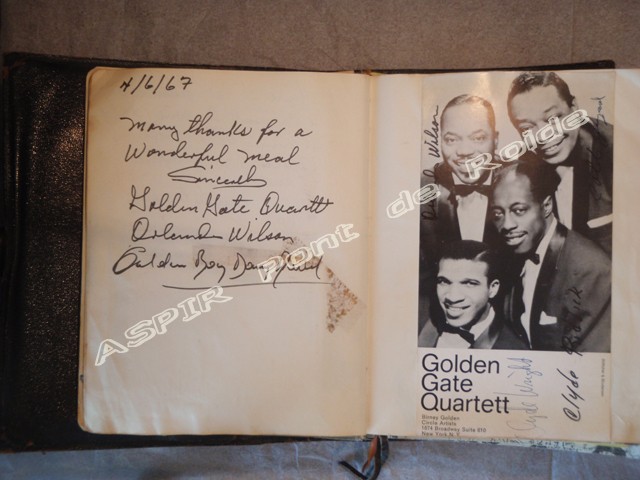 4/6/67
Many thanks for a
Wonderful meal
Sincerely
Golden Gate Quartett
Orlandus Wilson
Wilson
Golden
Gate
Quartett
Clyde Wright
Clyde
Golden
Circle Artists
1674 Broadway Suite 610
New York N.Y.
ASPIR Pont de Roide